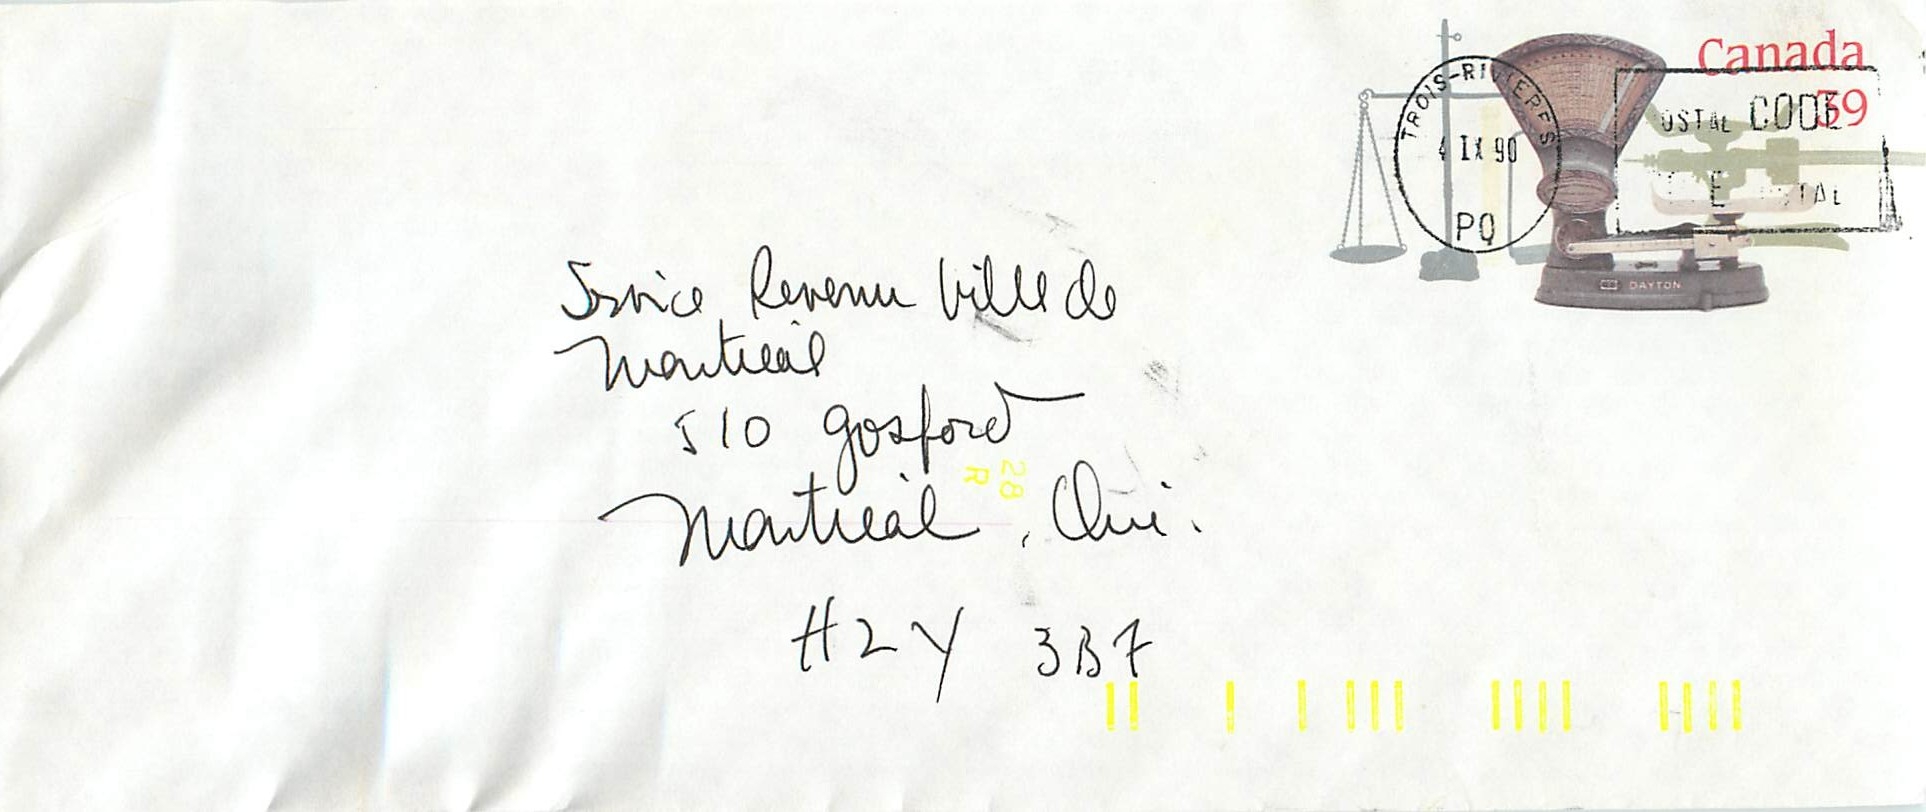 Canada
39
TROIS-RIVIERES
4 IX 90
PQ
POSTAL CODE
E POSTAL
DAYTON
Service Revenu Ville de
Montréal
510 Gosford
28
R
Montréal, Qué.
H2Y 3B7